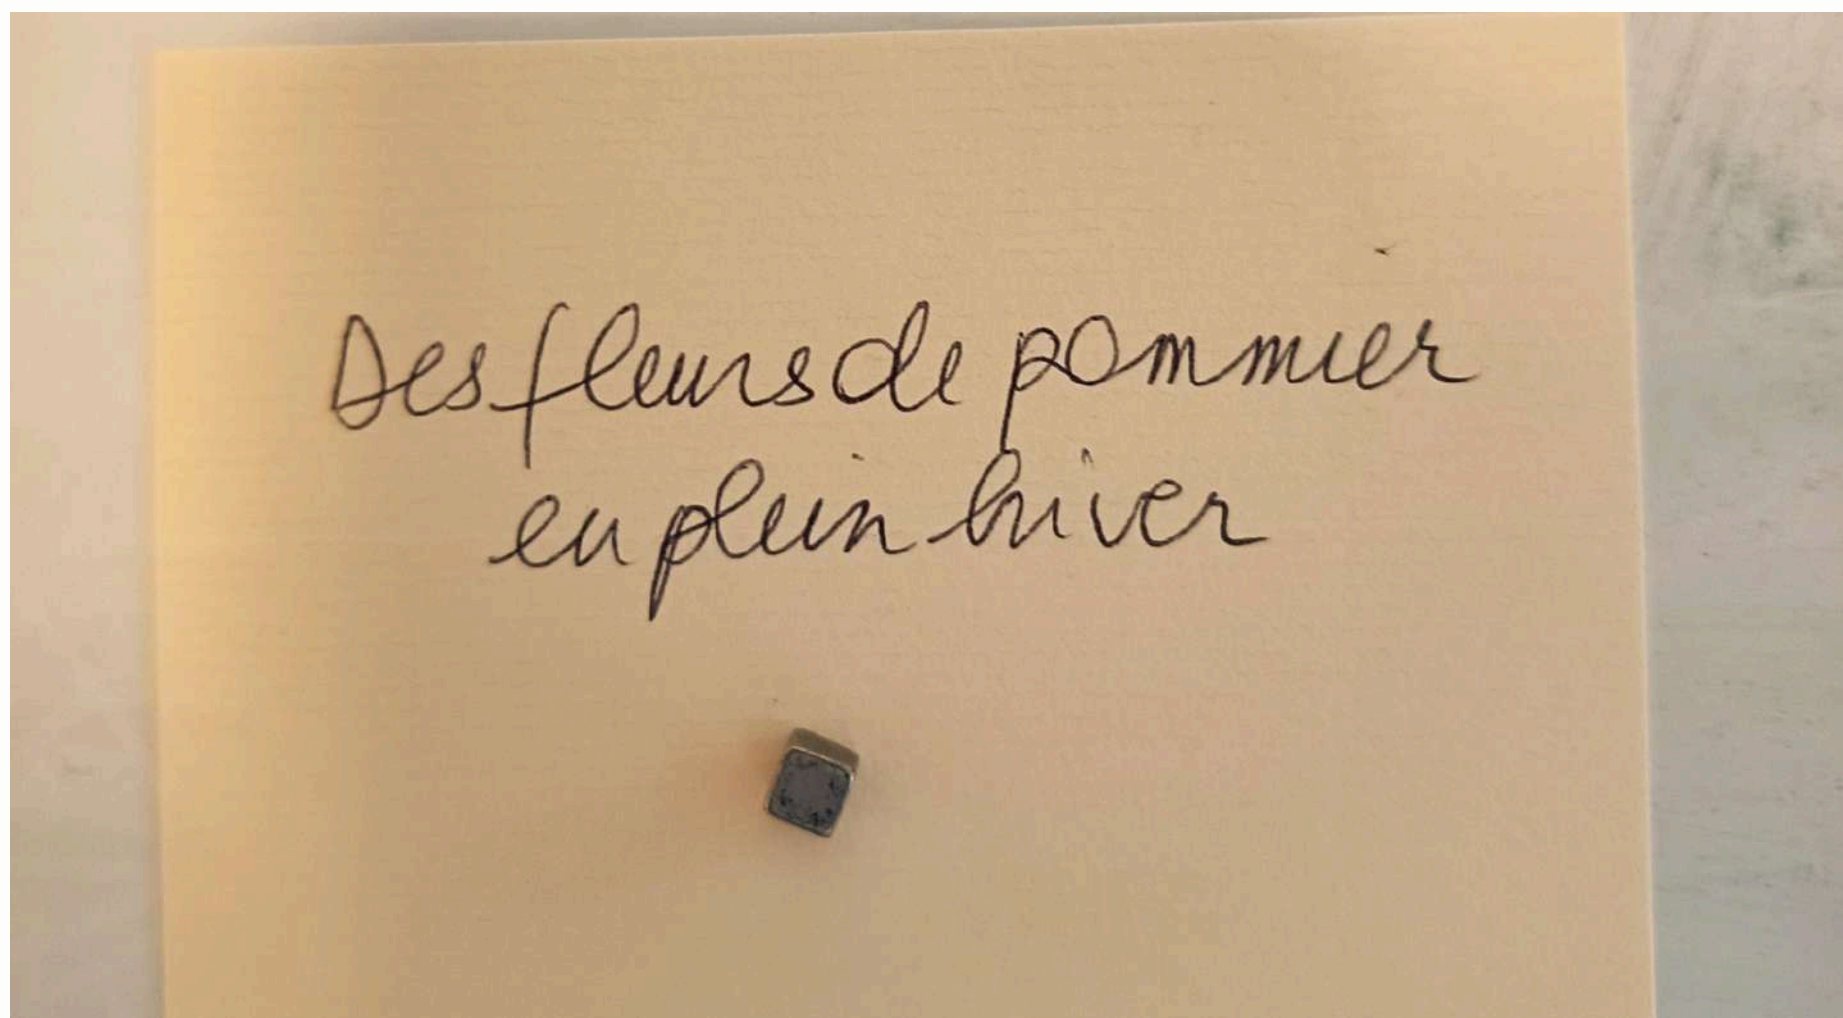 Des fleurs de pommier
en plein hiver